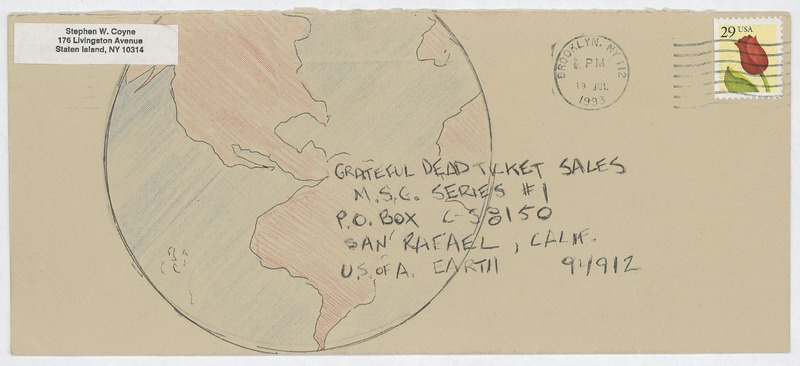 Stephen W. Coyne
176 Livingston Avenue
Staten Island, NY 10314
29 USA
BROOKLYN, NY 112
PM
19 JUL
1993
GRATEFUL DEAD TICKET SALES
M.S.G. SERIES #1
P.O. BOX C-S8150
SAN RAFAEL, CALIF.
U.S. OF A. EARTH 94912